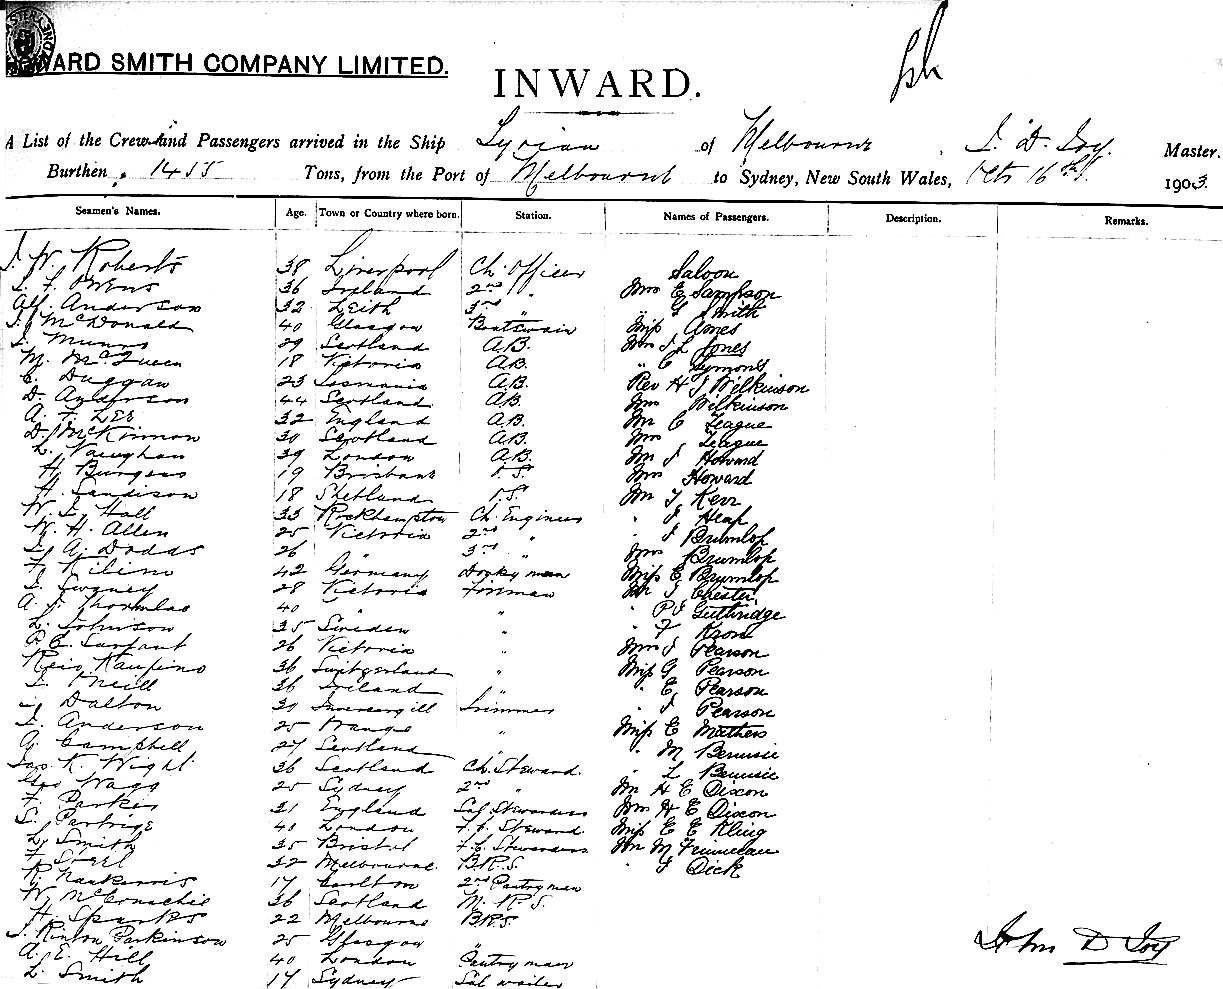 WARD SMITH COMPANY LIMITED.
INWARD.
A List of the Crew and Passengers arrived in the Ship Syrian of Melbourne, J. D. Joy. Master.
Burthen, 1455 Tons, from the Port of Melbourne to Sydney, New South Wales, Octr 16th 1903.
Seamen's Names. Age. Town or Country where born. Station. Names of Passengers. Description. Remarks.
Saloon
J. W. Roberts 38 Liverpool Ch. Officer
Owens 36 Ireland 2nd " Mrs E Sampson
Alf. Anderson 32 Leith 3rd " " Smith
J. McDonald 40 Glasgow Boatswain Miss Jones
Munro 29 Scotland A.B. Jones
M. McQueen 18 Victoria A.B. " C Symons
C. Duggan 23 Tasmania A.B. Rev H J Wilkinson
D. Anderson 44 Scotland A.B. Mrs Wilkinson
A. F. Lee 32 England A.B. Mr C League
D. McKinnon 30 Scotland A.B. Mrs League
L. Vaughan 39 London A.B. Mr J Howard
H. Burgess 19 Brisbane Mrs Howard
H. Sandison 18 Shetland Mr Kerr
W. Hall 33 Rockhampton Ch. Engineer " J Heap
W. H. Allen 25 Victoria 2nd " " J Brumlop
A. Dodds 26 " 3rd " Mrs Brumlop
42 Germany Donkeyman Miss E Brumlop
28 Victoria Fireman Mr J Chester
40 " " " P J Guthridge
L. Johnson 35 Sweden " "
26 Victoria " Mrs J Pearson
36 Switzerland " Miss G Pearson
Neill 36 Ireland " " E Pearson
Dalton 30 Invercargill Trimmer " J Pearson
Anderson 25 Orange " Miss E Mathers
A. Campbell 27 Scotland " " M
Jas K. Wight 36 Scotland Ch. Steward " L
Geo Wagg 25 Sydney 2nd " Mr H E Dixon
F. Parkin 31 England Sal Stewardess Mrs H E Dixon
S. Partrige 40 London F.C. Steward Miss E E Kling
L. Smith 35 Bristol F.C. Stewardess Mr M
32 Melbourne B.R.S. " J Dick
17 Carlton 2nd Pantryman
W. McConachie 36 Scotland M.R.S.
H. Sparks 22 Melbourne B.R.S.
J. Parkinson 25 Glasgow "
A. E. Hill 40 London Pantryman
L. Smith 17 Sydney Sal waiter
John D Joy